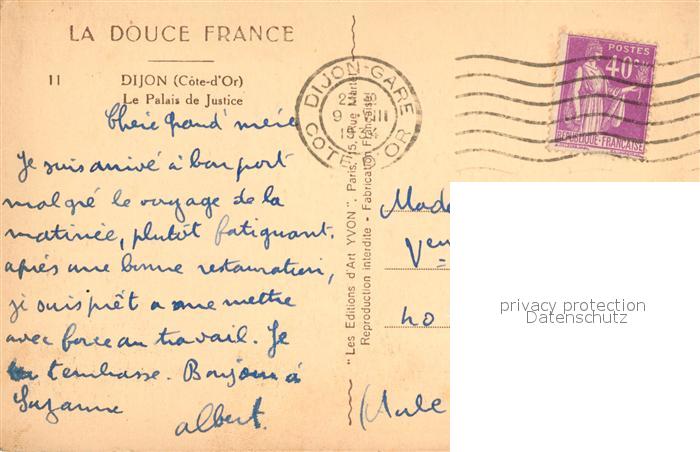 LA DOUCE FRANCE
11 DIJON (Côte-d'Or)
Le Palais de Justice
Chère Grand'mère
Je suis arrivé à bon port
malgré le voyage de la
matinée, plutôt fatiguant.
après une bonne restauration,
je suis prêt a me mettre
avec force au travail. Je
t'embrasse. Bonjour à
Suzanne
Albert.
"Les Editions d'Art YVON", Paris, 15, Rue Martel
Reproduction interdite - Fabrication Française
DIJON-GARE
1934
COTE D'OR
POSTES
40c
REPUBLIQUE-FRANÇAISE
Mada
Veu
40
(Aube
privacy protection
Datenschutz